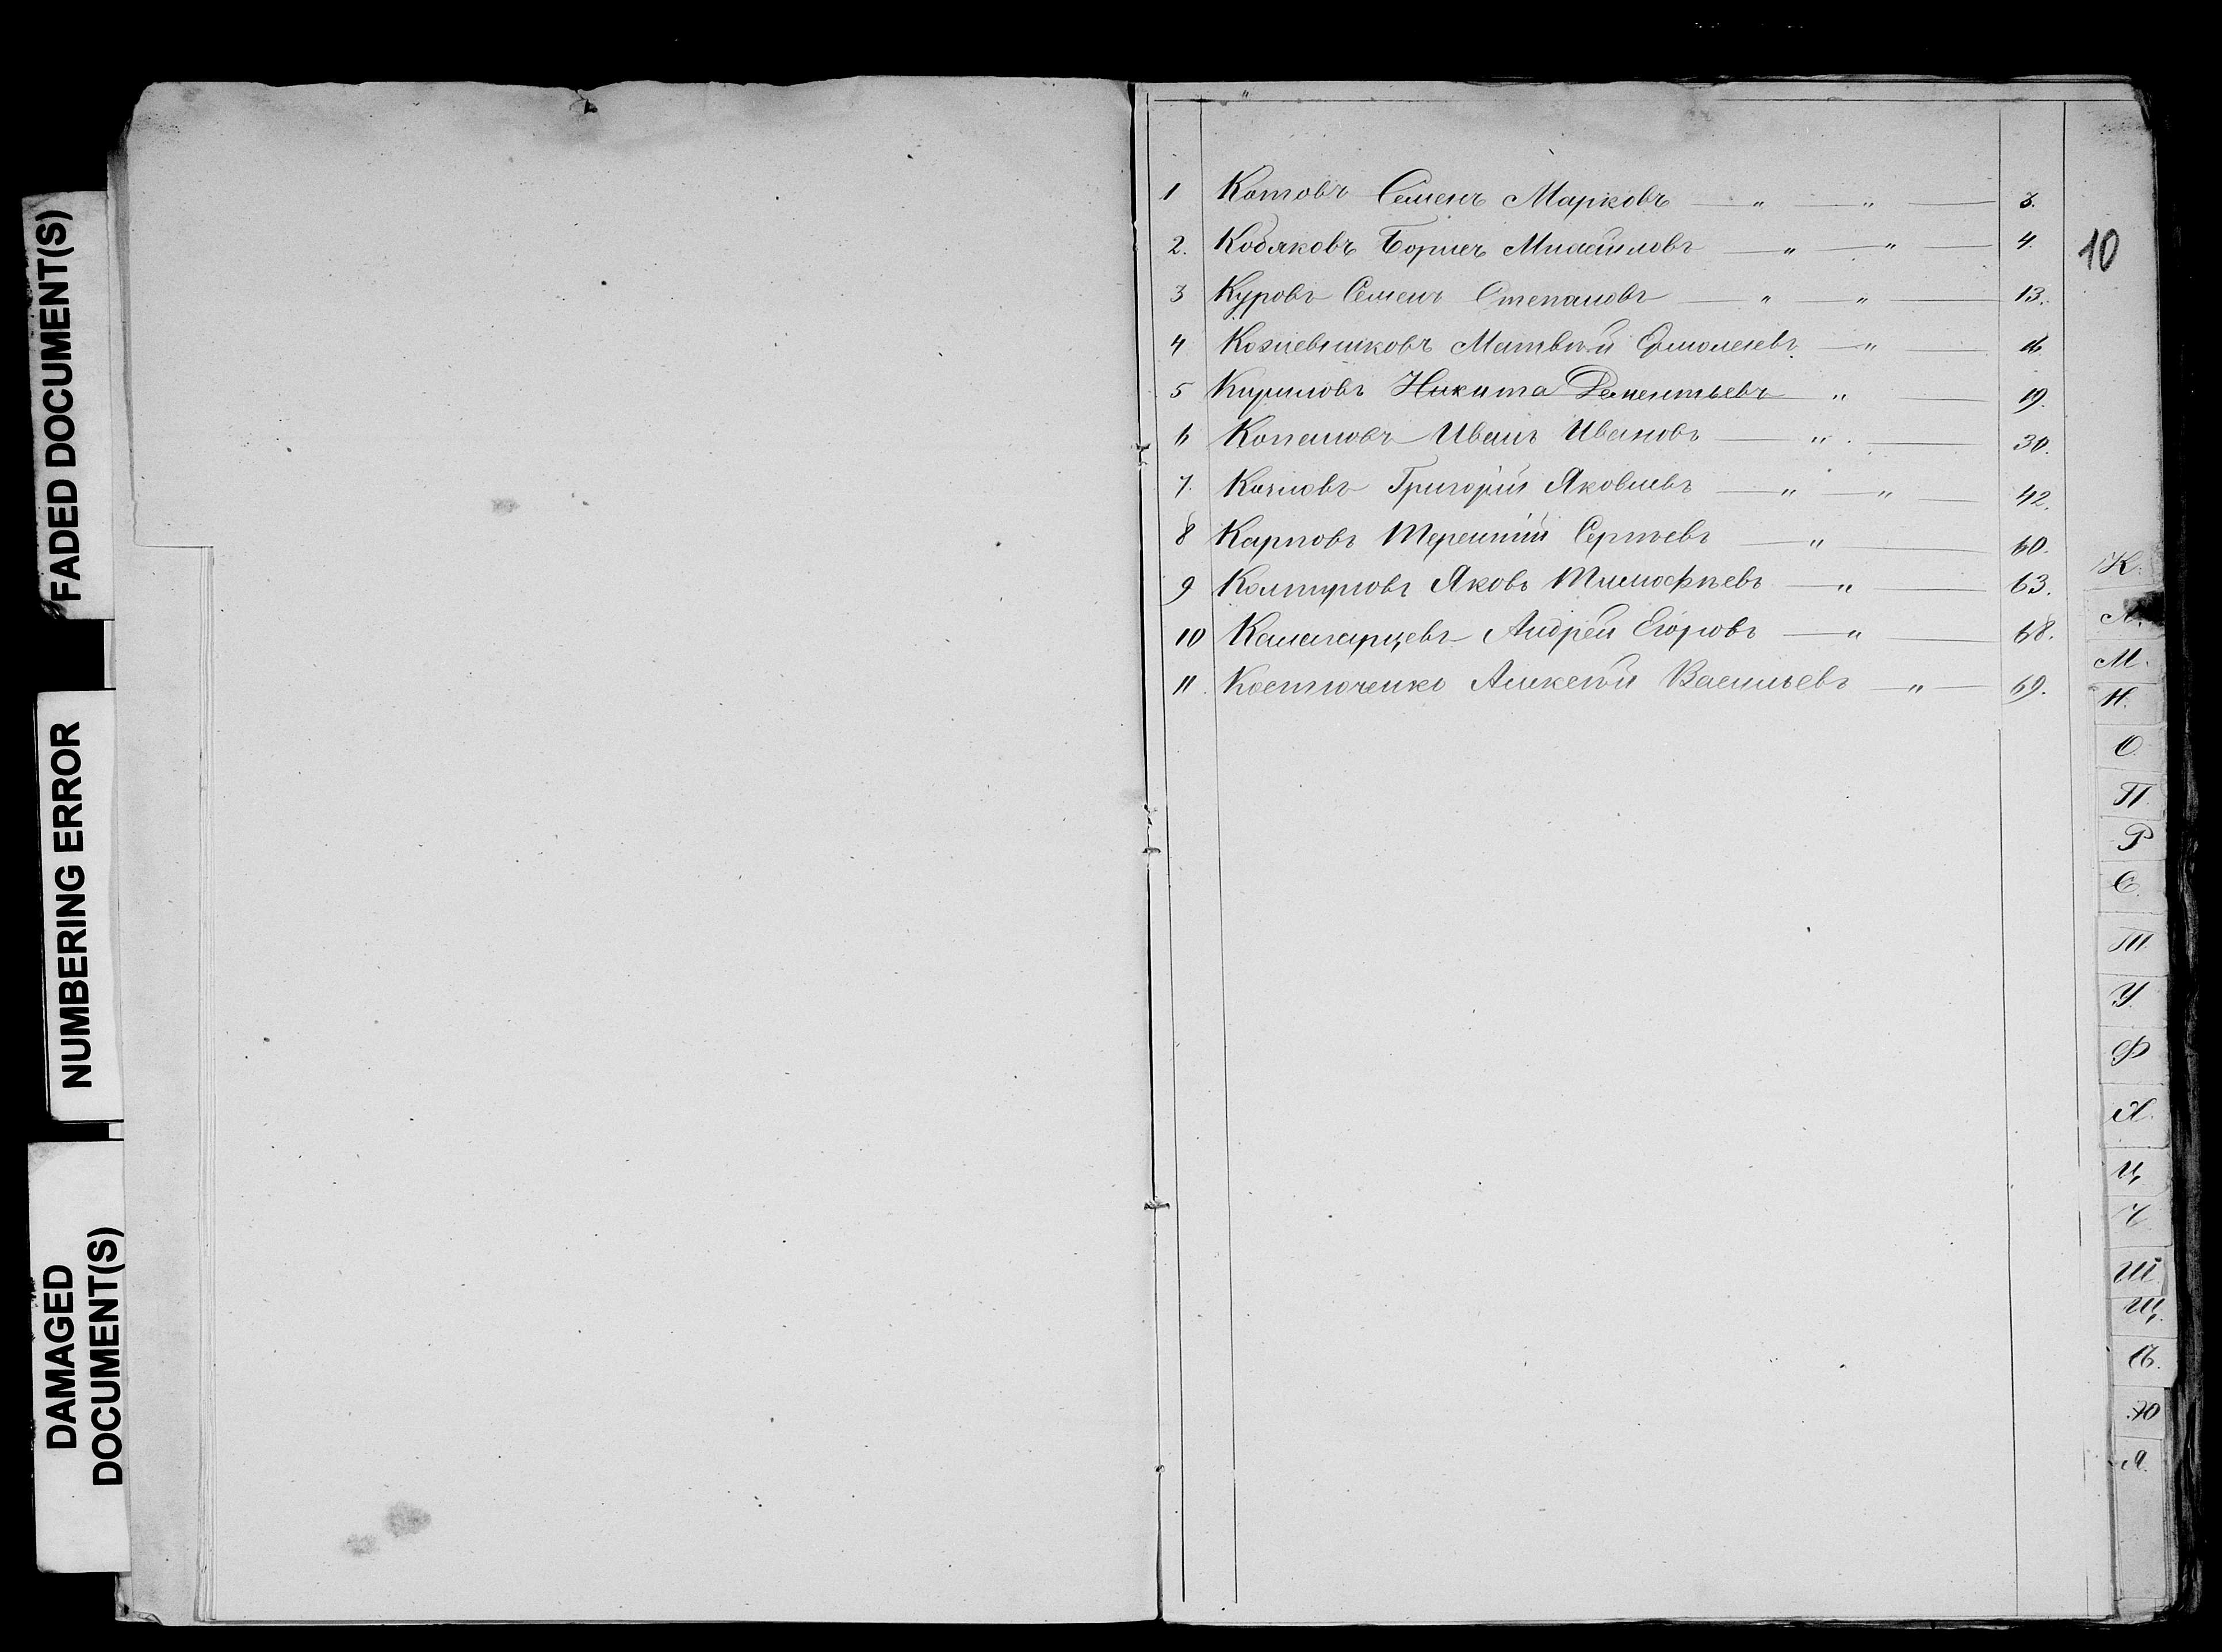 FADED DOCUMENT(S)
NUMBERING ERROR
DAMAGED
DOCUMENT(S)
10
1 Котовъ Семенъ Марковъ — „ — „ — 3.
2. Кобяковъ Борисъ Михайловъ — „ — „ — 4.
3 Куровъ Семенъ Степановъ — „ — „ — 13.
4 Кожевниковъ Матвѣй Ермолаевъ — „ — 16
5 Кириловъ Никита Дементьевъ „ — 19.
6 Копановъ Иванъ Ивановъ — „ — 30.
7. Григорій Яковлевъ — „ — „ — 42.
8 Карповъ Терентій Сергѣевъ — „ — 60.
9 Колтуновъ Яковъ Тимофѣевъ — „ — 63.
10 Андрей Егоровъ — „ — 68.
11 Костюченко Алексѣй Васильевъ — „ — 69.
К.
Л.
М.
Н.
О.
П.
Р
С.
Т.
У.
Ф
Х.
Ц
Ч
Ш
Щ.
Ѣ.
Ю
Я.